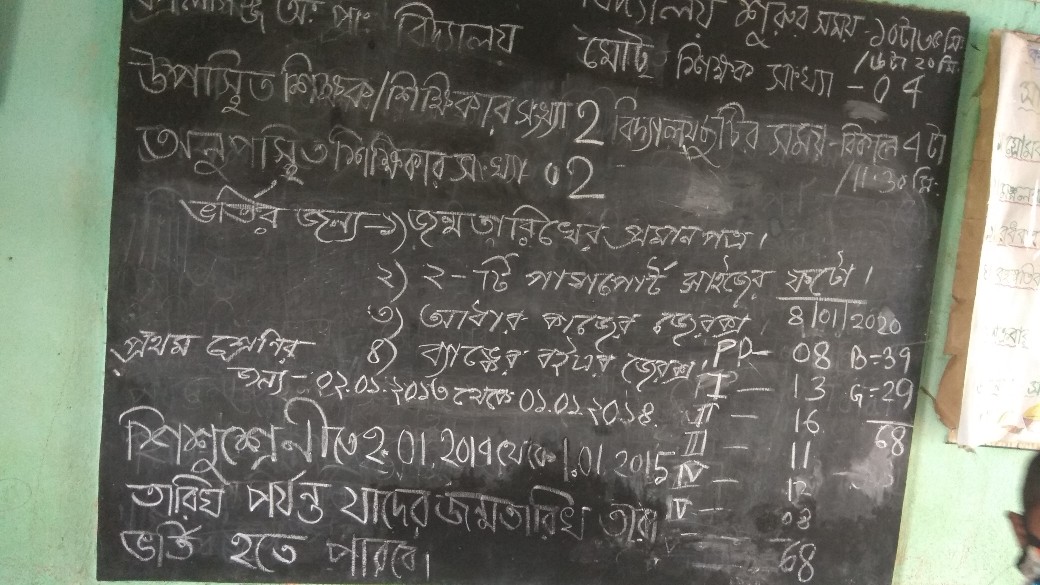 অঃ প্রাঃ বিদ্যালয়
বিদ্যালয় শুরুর সময় - ১০টা ৩৫ মিঃ
মোট শিক্ষক সংখ্যা - 04
উপস্থিত শিক্ষক/শিক্ষিকার সংখ্যা 2
বিদ্যালয় ছুটির সময় - বিকাল 4 টা
অনুপস্থিত শিক্ষিকার সংখ্যা 02
ভর্তির জন্য - ১) জন্ম তারিখের প্রমান পত্র।
২) ২ - টি পাসপোর্ট সাইজের ফটো।
৩) আধার কার্ডের জেরক্স
৪) ব্যাঙ্কের বইএর জেরক্স
প্রথম শ্রেণির
জন্য - ০২.০১.২০১৩ থেকে ০১.০১.২০১৪
শিশুশ্রেনীতে 2.01.201৭ থেকে 1.01.2015
তারিখ পর্যন্ত যাদের জন্মতারিখ তারা
ভর্তি হতে পারবে।
8/01/2020
PP - 08 B-39
I - 13 G-29
II - 16 68
III - 11
IV - 12
V - 08
68